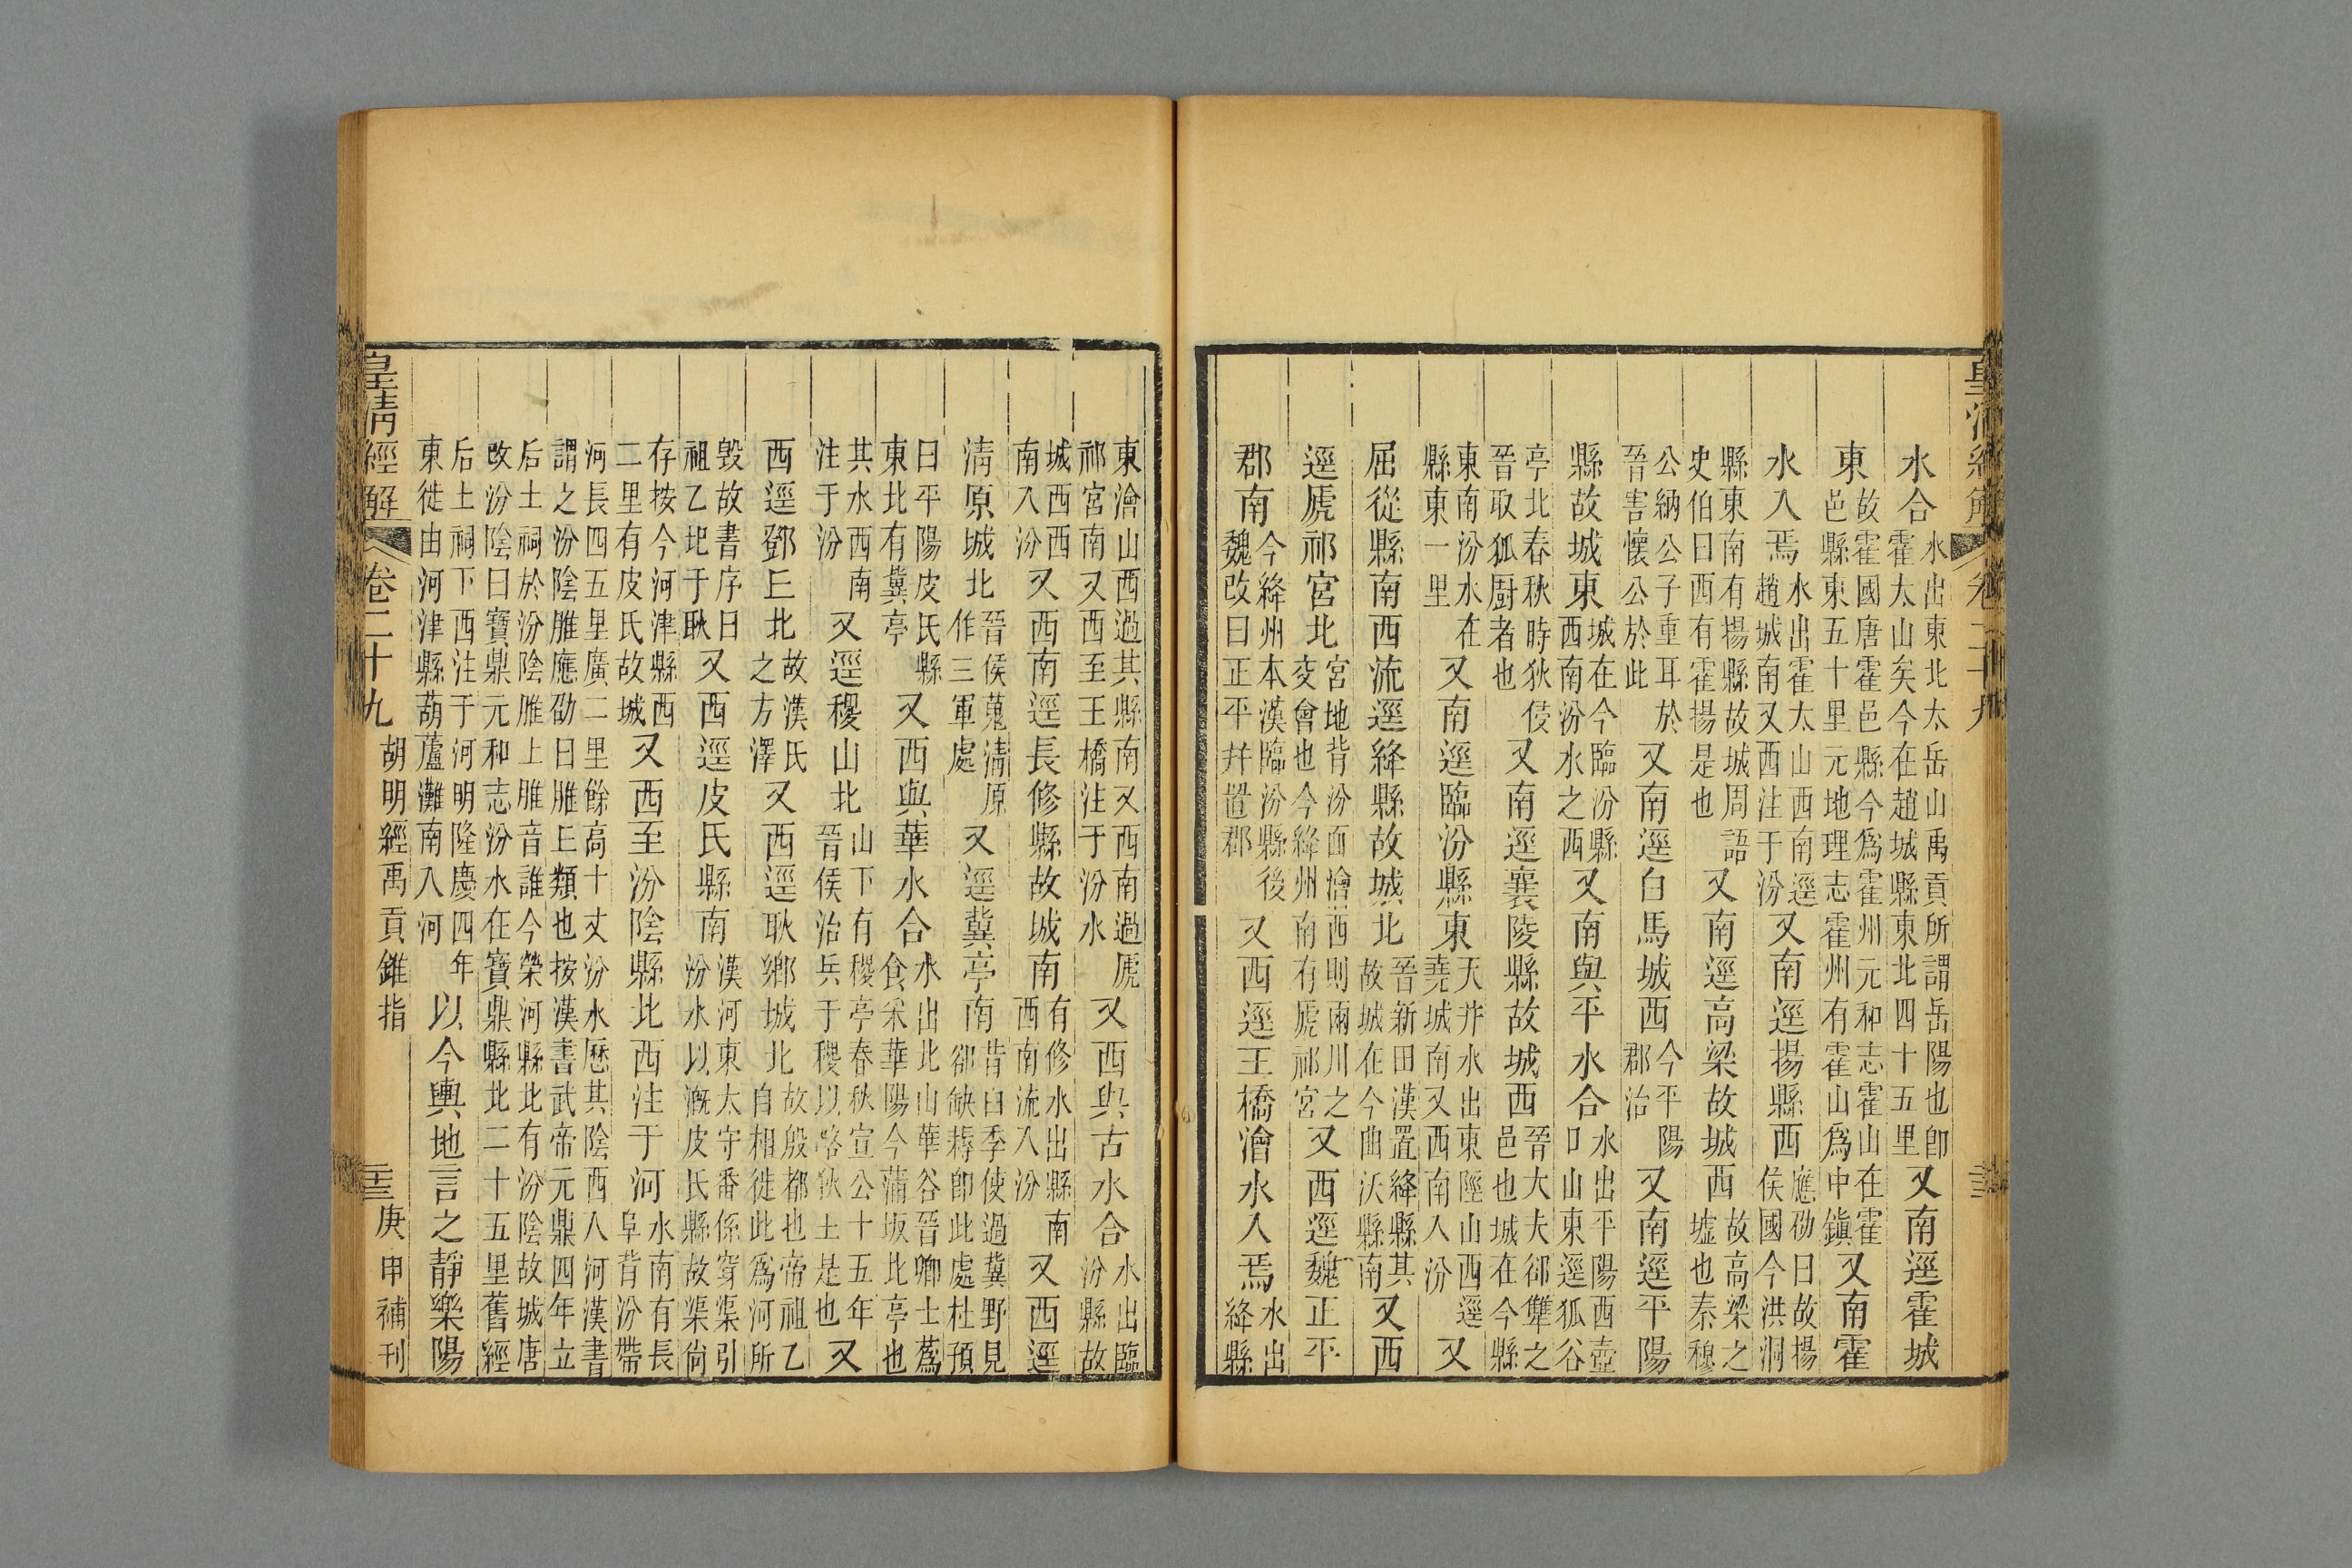 皇清經解 卷二十九
水合水出東北太岳山禹貢所謂岳陽也卽霍太山矣今在趙城縣東北四十五里又南逕霍城
東故霍國唐霍邑縣今爲霍州元和志霍山在霍邑縣東五十里元地理志霍州有霍山爲中鎮又南霍
水入焉水出霍太山西南逕趙城南又西注于汾又南逕揚縣西應劭曰故揚侯國今洪洞
縣東南有揚縣故城周語史伯曰西有霍揚是也又南逕高梁故城西故高梁之墟也秦穆
公納公子重耳於晉害懷公於此又南逕白馬城西今平陽郡治又南逕平陽
縣故城東城在今臨汾縣西南汾水之西又南與平水合水出平陽西壺口山東逕狐谷
亭北春秋時狄侵晉取狐廚者也又南逕襄陵縣故城西晉大夫郤犨之邑也城在今縣
東南汾水在縣東一里又南逕臨汾縣東天井水出東陘山西逕堯城南又西南入汾又
屈從縣南西流逕絳縣故城北晉新田漢置絳縣其故城在今曲沃縣南又西
逕虒祁宮北宮地背汾面澮西則兩川之交會也今絳州南有虒祁宮又西逕魏正平
郡南今絳州本漢臨汾縣後魏改曰正平幷置郡又西逕王橋澮水入焉水出絳縣
東澮山西過其縣南又西南過虒祁宮南又西至王橋注于汾水又西與古水合水出臨汾縣故
城西西南入汾又西南逕長修縣故城南有修水出縣南西南流入汾又西逕
清原城北晉侯蒐清原作三軍處又逕冀亭南昔臼季使過冀野見郤缺耨卽此處杜預
曰平陽皮氏縣東北有冀亭又西與華水合水出北山華谷晉卿士蔿食采華陽今蒲坂北亭也
其水西南注于汾又逕稷山北山下有稷亭春秋宣公十五年晉侯治兵于稷以略狄土是也又
西逕鄧丘北故漢氏之方澤又西逕耿鄉城北故殷都也帝祖乙自相徙此爲河所
毀故書序曰祖乙圯于耿又西逕皮氏縣南漢河東太守番係穿渠引汾水以漑皮氏縣故渠尙
存按今河津縣西二里有皮氏故城又西至汾陰縣北西注于河水南有長阜背汾帶
河長四五里廣二里餘高十丈汾水歷其陰西入河漢書謂之汾陰脽應劭曰脽丘類也按漢書武帝元鼎四年立
后土祠於汾陰脽上脽音誰今榮河縣北有汾陰故城唐改汾陰曰寶鼎元和志汾水在寶鼎縣北二十五里舊經
后土祠下西注于河明隆慶四年東徙由河津縣葫蘆灘南入河以今輿地言之靜樂陽
皇清經解 卷二十九 胡明經禹貢錐指 庚申補刊